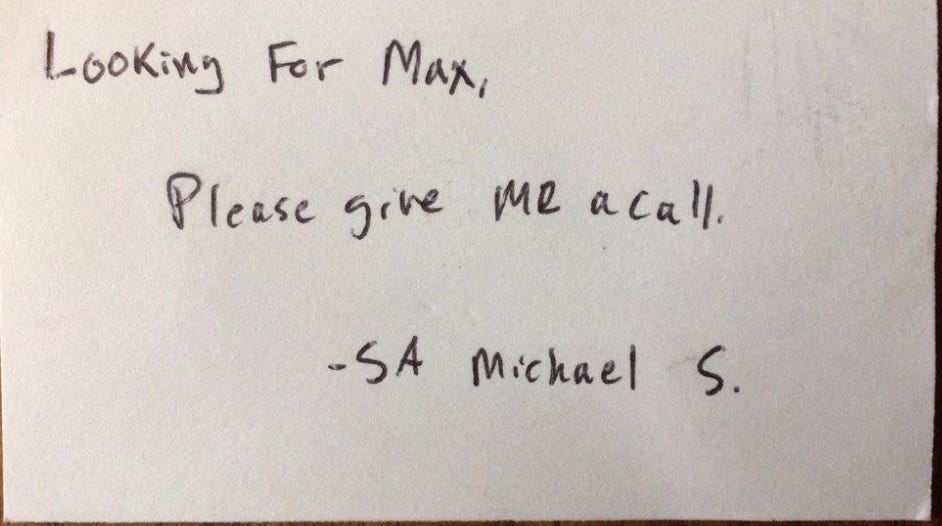 Looking For Max,
Please give me a call.
-SA Michael S.